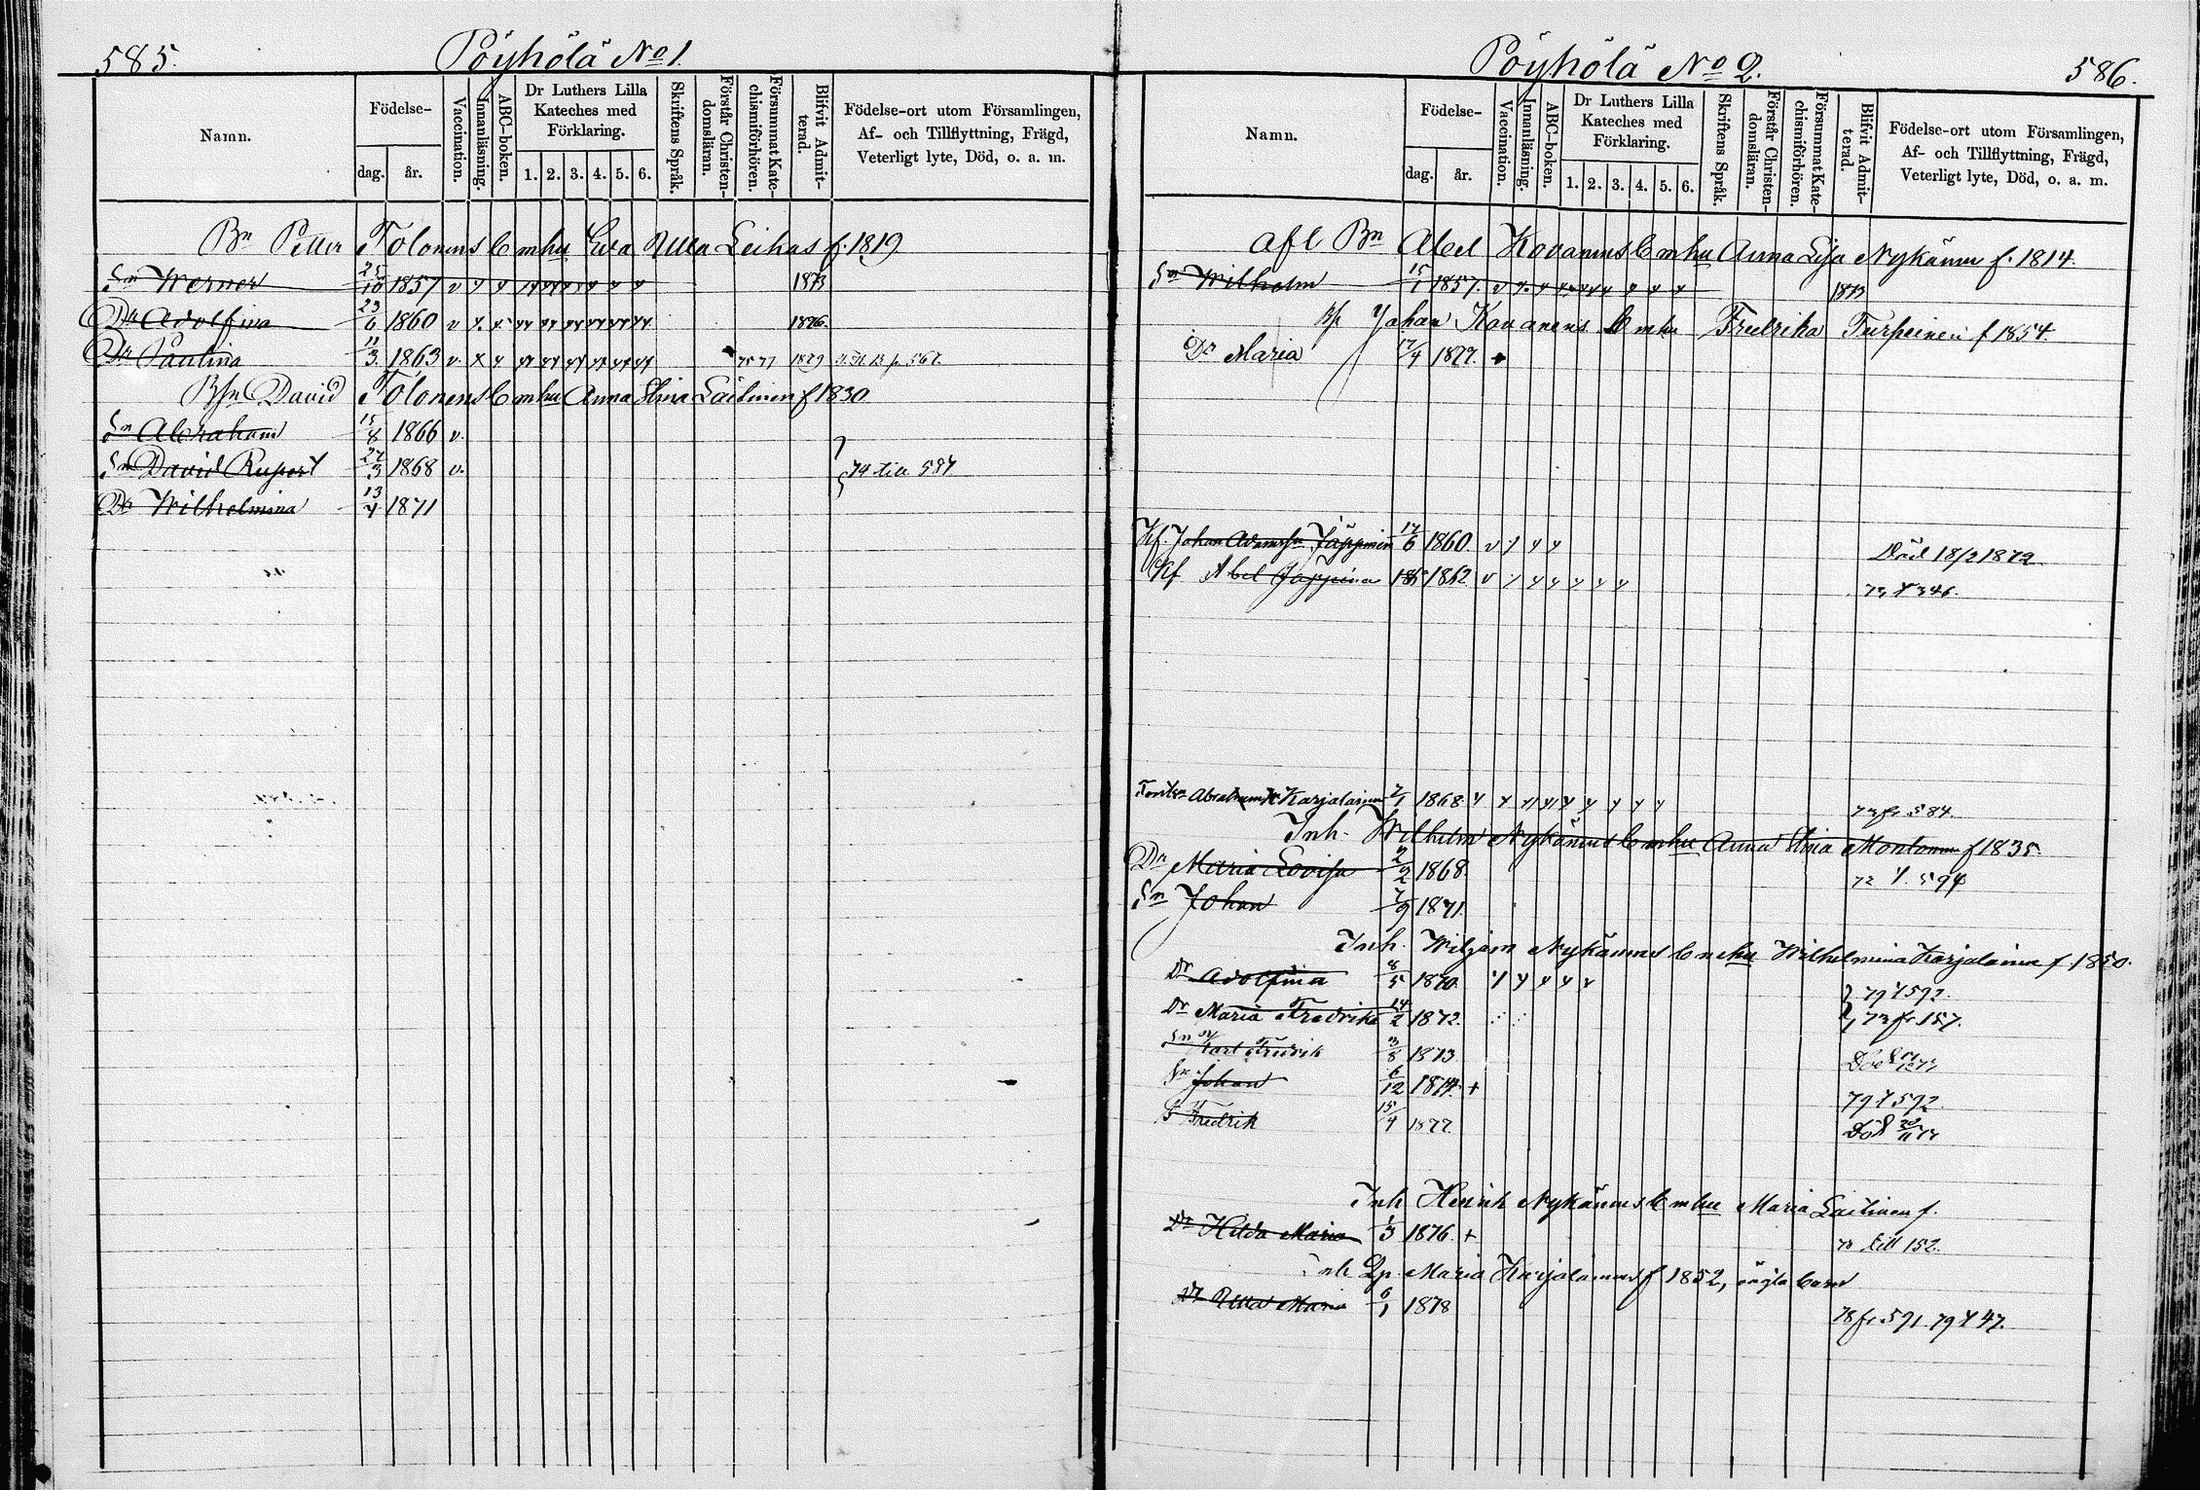 585.
Pöyhölä No 1.
Namn.
Födelse-
dag.
år.
Vaccination.
Innanläsning.
ABC-boken.
Dr Luthers Lilla
Kateches med
Förklaring.
1. 2. 3. 4. 5. 6.
Skriftens Språk.
Förstår Christen-
domsläran.
Försummat Kate-
chismiförhören.
Blifvit Admit-
terad.
Födelse-ort utom Församlingen,
Af- och Tillflyttning, Frägd,
Veterligt lyte, Död, o. a. m.
Bn Petter Tolonens b m hu Eva Ulla Leikas f. 1819.
Sn Werner 25/10 1857 v 1873
Dr Adolfina 23/6 1860 v 1876.
Dr Paulina 11/3 1863 v. 75 77 1879 p. 567.
Bsn David Tolonens b m hu Anna Stina Laitinen f 1830
Sn Abraham 15/8 1866 v.
Sn David Rupert 27/3 1868 v. 74 till 587
Dr Wilhelmina 13/4 1871
Pöyhölä No 2.
586.
Namn.
Födelse-
dag.
år.
Vaccination.
Innanläsning.
ABC-boken.
Dr Luthers Lilla
Kateches med
Förklaring.
1. 2. 3. 4. 5. 6.
Skriftens Språk.
Förstår Christen-
domsläran.
Försummat Kate-
chismiförhören.
Blifvit Admit-
terad.
Födelse-ort utom Församlingen,
Af- och Tillflyttning, Frägd,
Veterligt lyte, Död, o. a. m.
afl Bn Abel Kovanens b m hu Anna Lisa Nykänen f. 1814.
Sn Wilhelm 15/1 1857. v 1873
Johan Kovanens b m hu Fredrika Turpeinen f 1854.
Dr Maria 17/4 1877.
Kf. Johan Adamsson Jäppinen 17/6 1860. v Död 18/2 1872
Kf Abel Jäppinen 1862. v 73 t 346.
Abraham Karjalainen 2/1 1868 73 fr 584.
Inh. Wilhelm Nykänens b m hu Anna Stina Montonen f 1835.
Dr Maria Lovisa 2/2 1868. 72 t. 594
Sn Johan 7/9 1871.
Inh. Wiljam Nykänens b m hu Wilhelmina Karjalainen f 1850.
Dr Adolfina 8/5 1870. 79 t 592.
Dr Maria Fredrika 14/2 1872. 73 fr 157.
Sn Karl Fredrik 3/8 1873. Död
Sn Johan 6/12 1874. + 79 t 592.
S Fredrik 15/4 1877. Död
Inh Henrik Nykänens b m hu Maria Laitinen f.
Dr Hilda Maria 1/3 1876. + 78 till 152.
Inh Qp. Maria Karjalainens f 1852, oägta barn
Dr Ulla Maria 6/1 1878 78 fr 591 79 t 47.